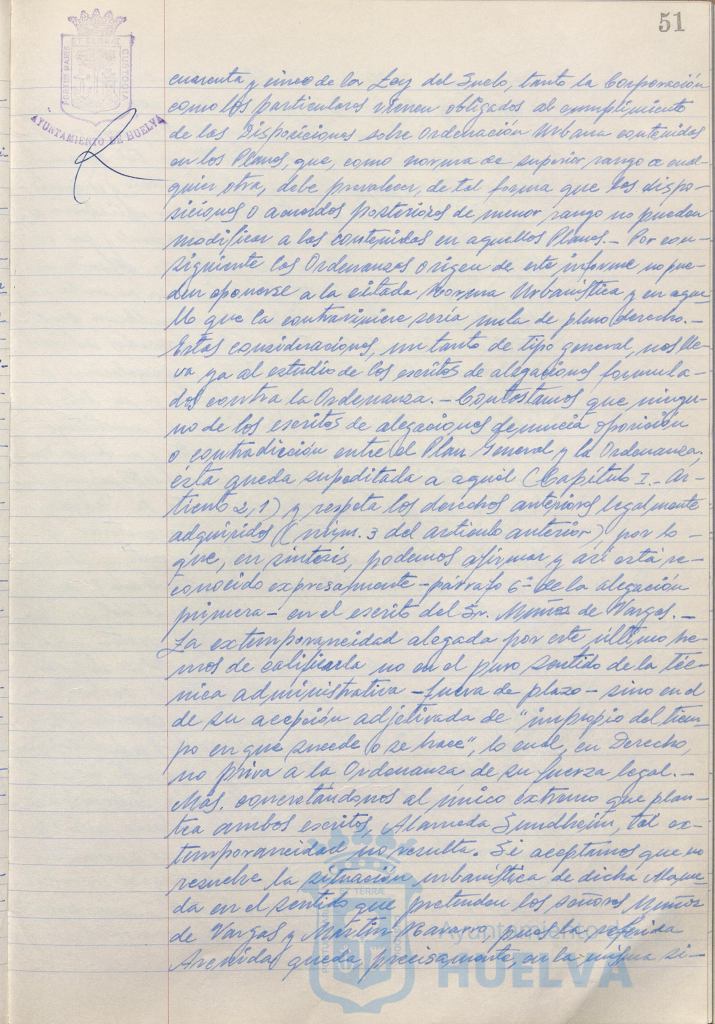 51
PORTUS MARIS ET TERRAE CUSTODIA
AYUNTAMIENTO DE HUELVA
cuarenta y cinco de la Ley del Suelo, tanto la Corporación
como los particulares vienen obligados al cumplimiento
de las Disposiciones sobre Ordenación Urbana contenidas
en los Planes, que, como norma de superior rango a cual-
quier otra, debe prevalecer, de tal forma que las dispo-
siciones o acuerdos posteriores de menor rango no puedan
modificar a las contenidas en aquellos Planes.- Por con-
siguiente las Ordenanzas origen de este informe no pue-
den oponerse a la citada Norma Urbanística y en aque
llo que la contraviniere sería nula de pleno derecho.-
Estas consideraciones, un tanto de tipo general, nos lle-
va ya al estudio de los escritos de alegaciones formula-
dos contra la Ordenanza.- Constatamos que ningu-
no de los escritos de alegaciones denuncia oposición
o contradicción entre el Plan General y la Ordenanza,
ésta queda supeditada a aquél (Capítulo I.- Ar-
tículo 2,1) y respeta los derechos anteriores legalmente
adquiridos (núm. 3 del artículo anterior) por lo
que, en síntesis, podemos afirmar y así está re-
conocido expresamente -párrafo 6º de la alegación
primera- en el escrito del Sr. Muñoz de Vargas.-
La extemporaneidad alegada por este último he-
mos de calificarla no en el puro sentido de la téc-
nica administrativa -fuera de plazo- sino en el
de su acepción adjetivada de "impropio del tiem-
po en que sucede o se hace", lo cual, en Derecho,
no priva a la Ordenanza de su fuerza legal.-
Más. concretándonos al único extremo que plan-
tea ambos escritos, Alameda Sundheim, tal ex-
temporaneidad no resulta. Si aceptamos que no
resuelve la situación urbanística de dicha Alame-
da en el sentido que pretenden los señores Muñoz
de Vargas y Martín Navarro, pues la referida
Avenida queda precisamente, en la misma si-
Ayuntamiento de
HUELVA